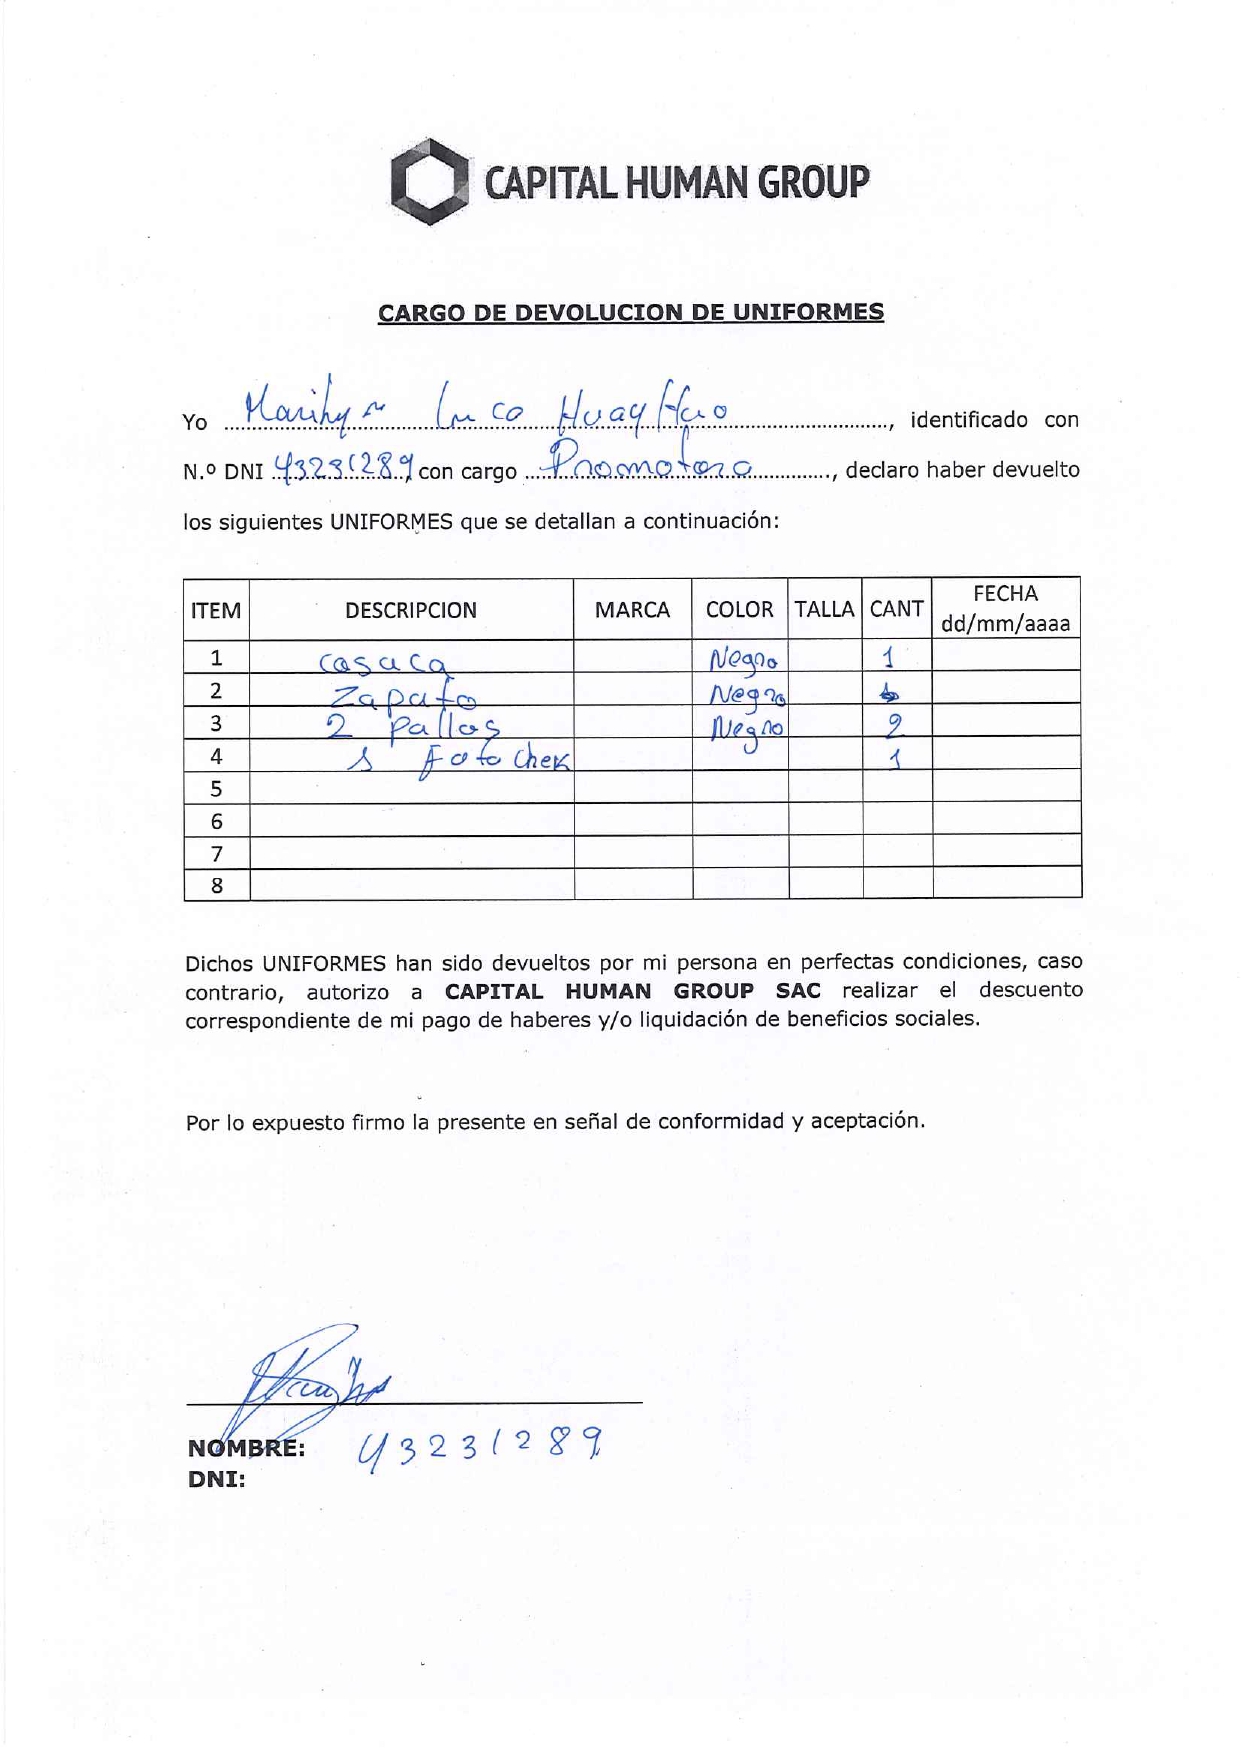 CAPITAL HUMAN GROUP
CARGO DE DEVOLUCION DE UNIFORMES
Yo Marilyn Inco Huayhuo, identificado con
N.º DNI 43231289, con cargo Promotora, declaro haber devuelto
los siguientes UNIFORMES que se detallan a continuación:
ITEM DESCRIPCION MARCA COLOR TALLA CANT FECHA dd/mm/aaaa
1 casaca Negro 1
2 Zapato Negro
3 2 pallos Negro 2
4 1 Fotochek 1
5
6
7
8
Dichos UNIFORMES han sido devueltos por mi persona en perfectas condiciones, caso
contrario, autorizo a CAPITAL HUMAN GROUP SAC realizar el descuento
correspondiente de mi pago de haberes y/o liquidación de beneficios sociales.
Por lo expuesto firmo la presente en señal de conformidad y aceptación.
NOMBRE: 43231289
DNI: